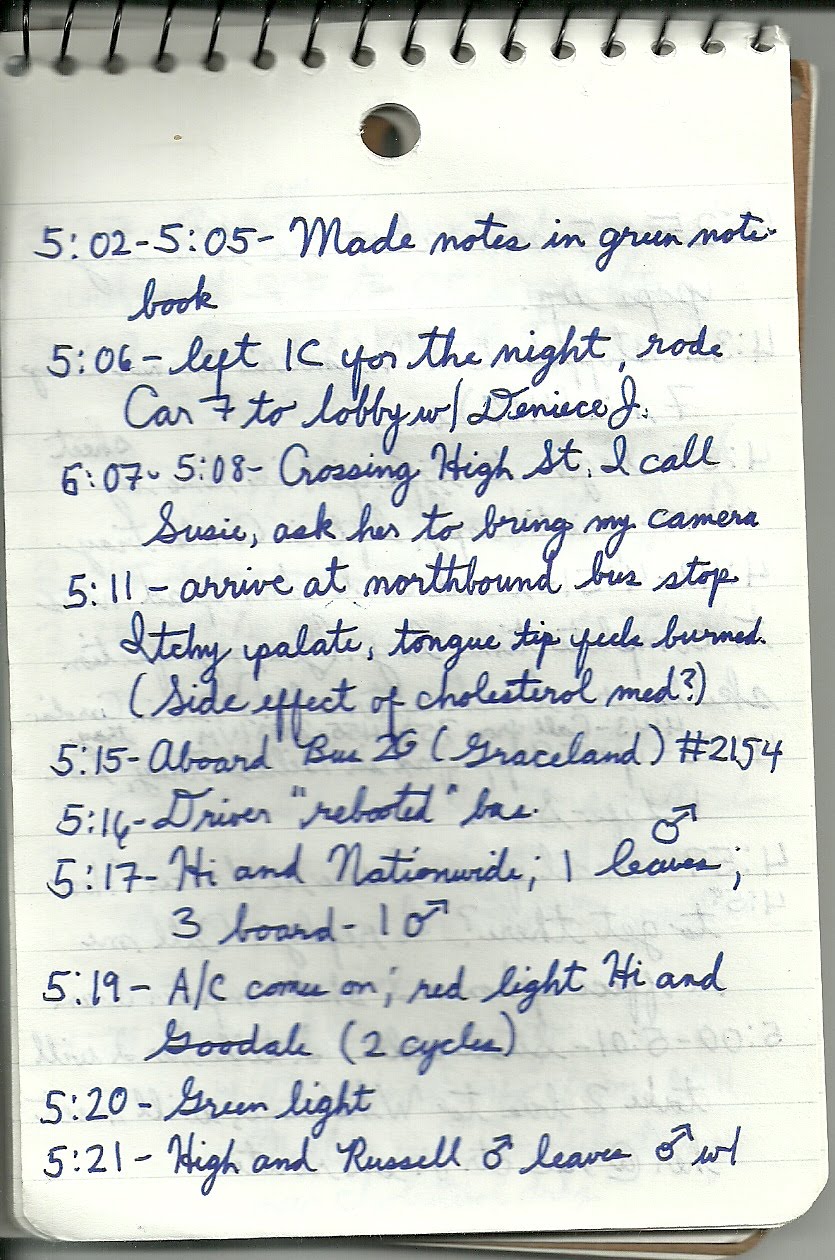 5:02-5:05- Made notes in green note-
book
5:06- left IC for the night, rode
Car 7 to lobby w/ Deniece J.
5:07- 5:08- Crossing High St. I call
Susie, ask her to bring my camera
5:11 - arrive at northbound bus stop
Itchy palate, tongue tip feels burned.
(Side effect of cholesterol med?)
5:15- Aboard Bus 2G (Graceland) #2154
5:16- Driver "rebooted" bus.
5:17- Hi and Nationwide; 1 ♂ leaves;
3 board- 1 ♂
5:19- A/C comes on; red light Hi and
Goodale (2 cycles)
5:20- Green light
5:21- High and Russell ♂ leaves ♂ w/